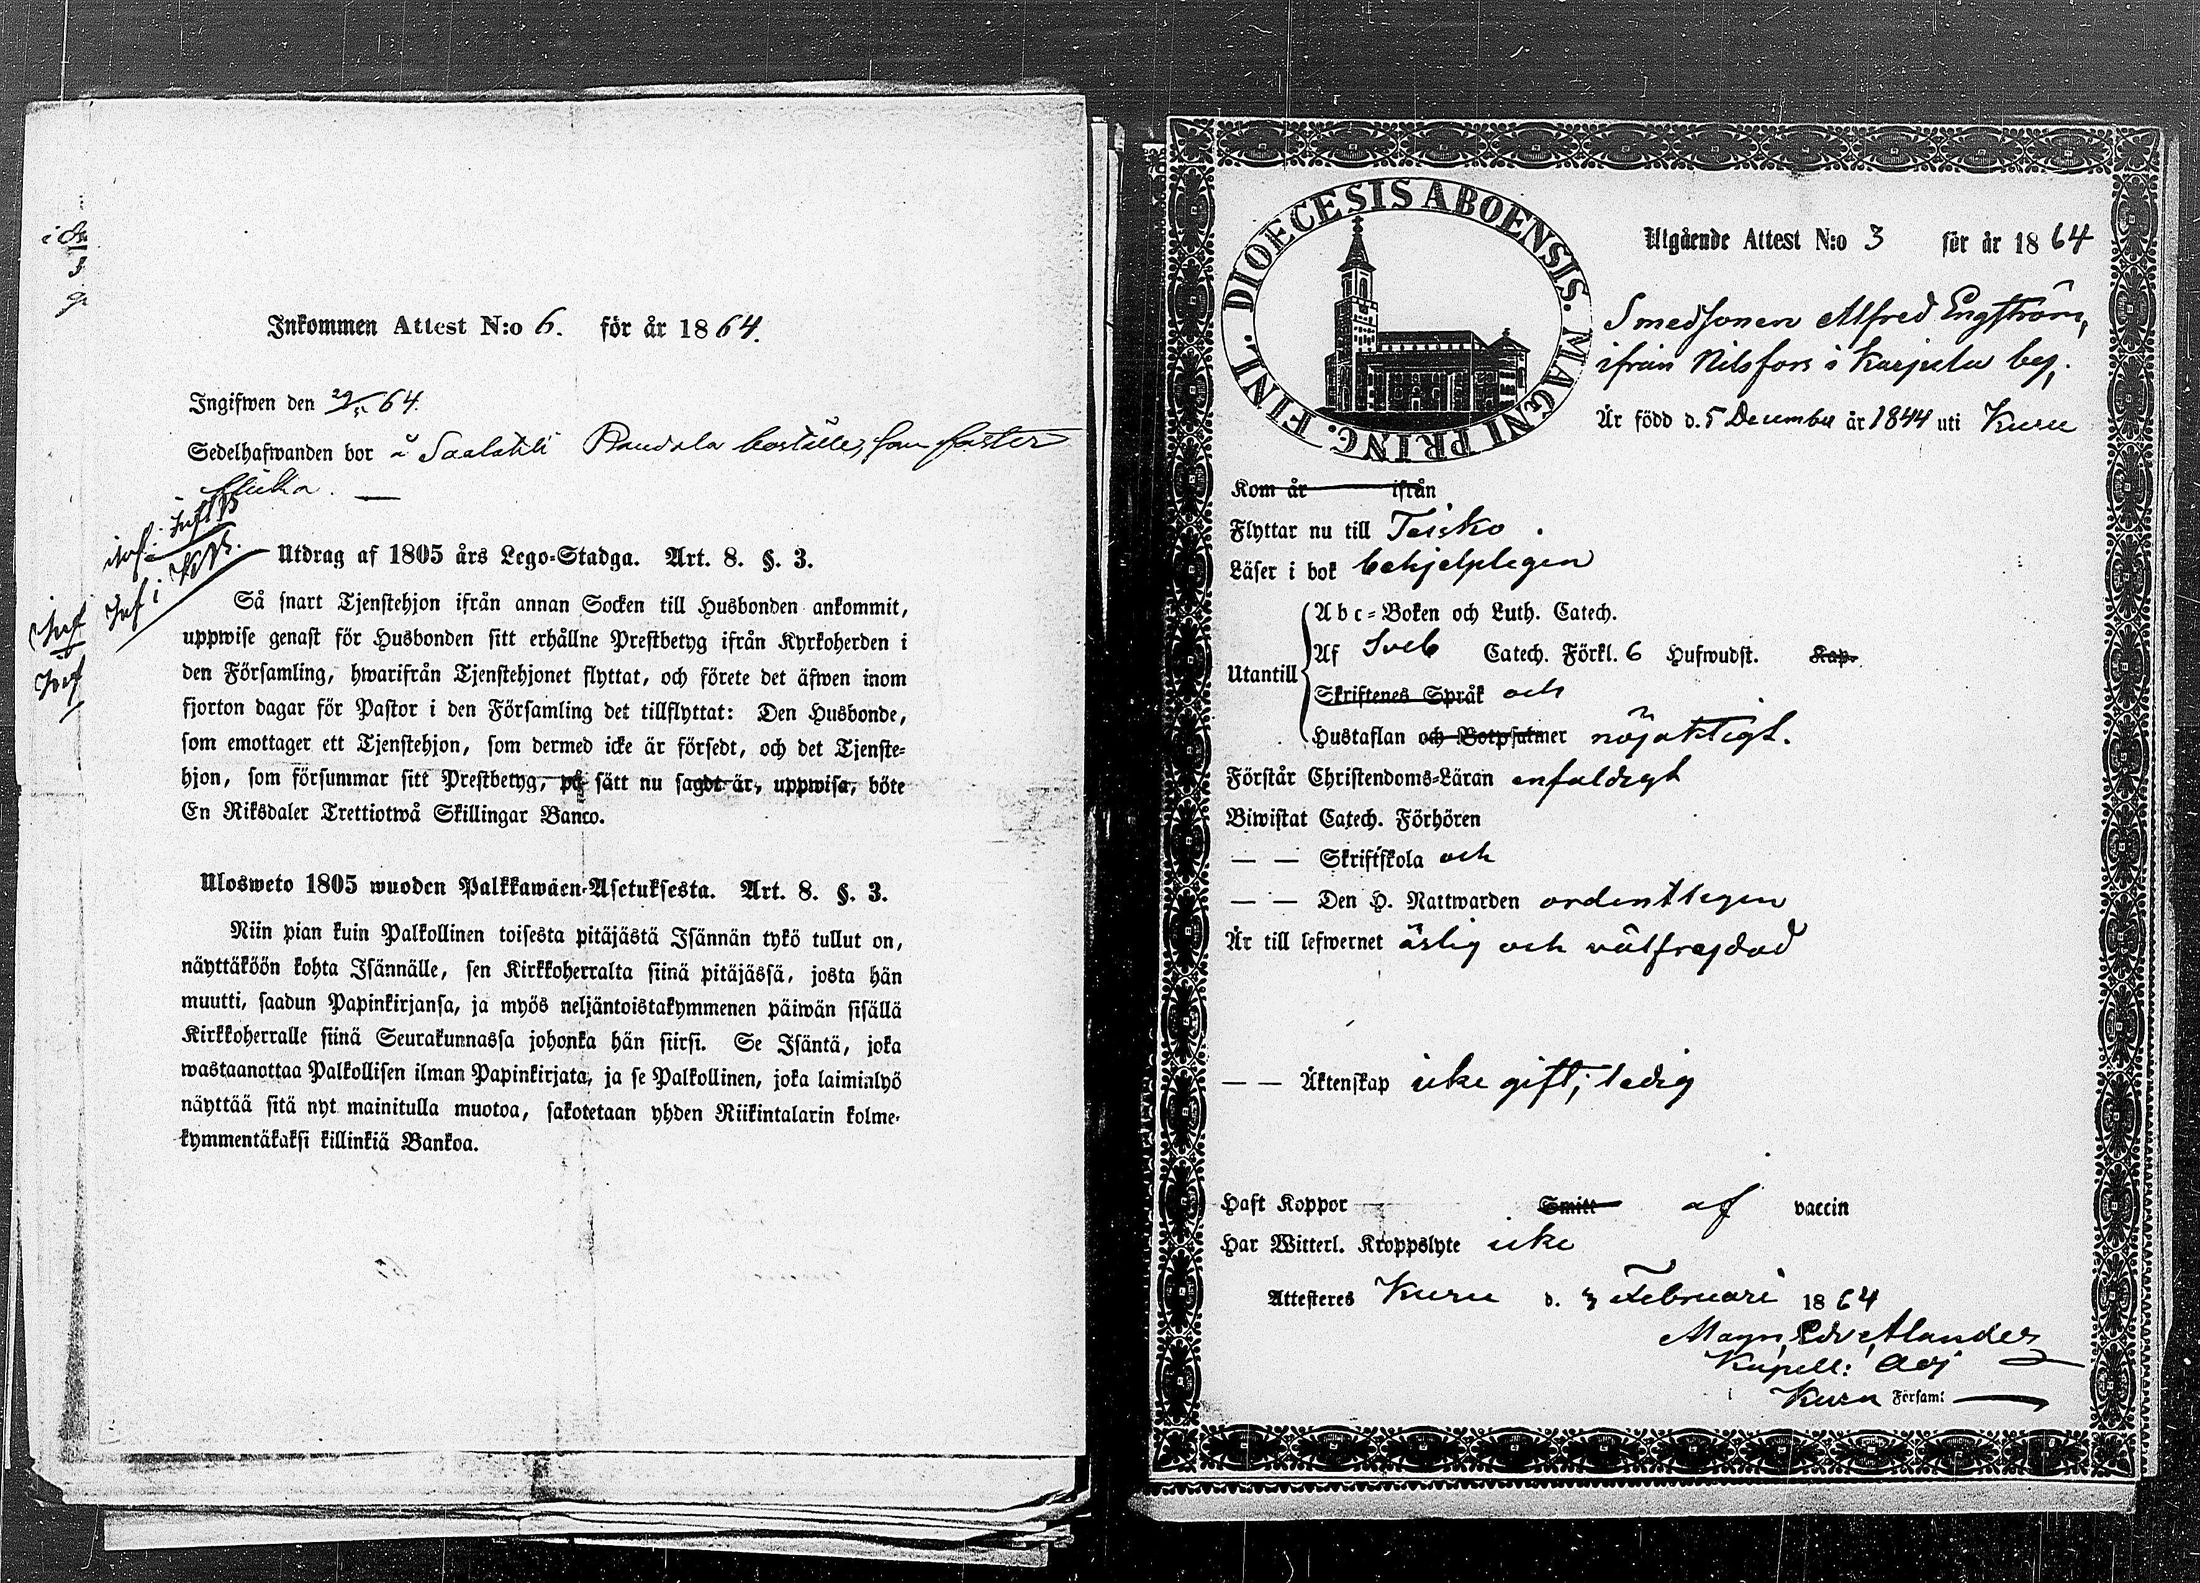 Inkommen Attest N:o 6. för år 1864.
Ingifwen den 29/5 64.
Sedelhafwanden bor å
Utdrag af 1805 års Lego-Stadga. Art. 8. §. 3.
Så snart Tjenstehjon ifrån annan Socken till Husbonden ankommit,
uppwise genast för Husbonden sitt erhållne Prestbetyg ifrån Kyrkoherden i
den Församling, hwarifrån Tjenstehjonet flyttat, och förete det äfwen inom
fjorton dagar för Pastor i den Församling det tillflyttat: Den Husbonde,
som emottager ett Tjenstehjon, som dermed icke är försedt, och det Tjenste-
hjon, som försummar sitt Prestbetyg, på sätt nu sagdt är, uppwisa, böte
En Riksdaler Trettiotwå Skillingar Banco.
Ulosweto 1805 wuoden Palkkawäen-Asetuksesta. Art. 8. §. 3.
Niin pian kuin Palkollinen toisesta pitäjästä Isännän tykö tullut on,
näyttäköön kohta Isännälle, sen Kirkkoherralta siinä pitäjässä, josta hän
muutti, saadun Papinkirjansa, ja myös neljäntoistakymmenen päiwän sisällä
Kirkkoherralle siinä Seurakunnassa johonka hän siirsi. Se Isäntä, joka
wastaanottaa Palkollisen ilman Papinkirjata, ja se Palkollinen, joka laiminlyö
näyttää sitä nyt mainitulla muotoa, sakotetaan yhden Riikintalarin kolme-
kymmentäkaksi killinkiä Bankoa.
DIOECESIS ABOENSIS. MAGNI PRINC. FINL.
Utgående Attest N:o 3 för år 1864
Smedsonen Alfred Engström,
ifrån Nilsfors i Karjula by.
Är född d. 5 December år 1844 uti Kuru
Kom år ifrån
Flyttar nu till Teisko.
Läser i bok behjelpligen
Abc-Boken och Luth. Catech.
Af Sveb Catech. Förkl. 6 Hufwudst. Kap.
Utantill
Skriftenes Språk och
Hustaflan och Botpsalmer nöjaktigt.
Förstår Christendoms-Läran enfaldigt
Biwistat Catech. Förhören
— — Skriftskola och
— — Den H. Nattwarden ordentligen
Är till lefwernet ärlig och välfrejdad
— — Äktenskap icke gift; ledig
Haft Koppor Smitt af vaccin
Har Witterl. Kroppslyte icke
Attesteres Kuru d. 3 Februari 1864
Magn. Edv. Alander
Kapell: Adj
i Kuru Församl